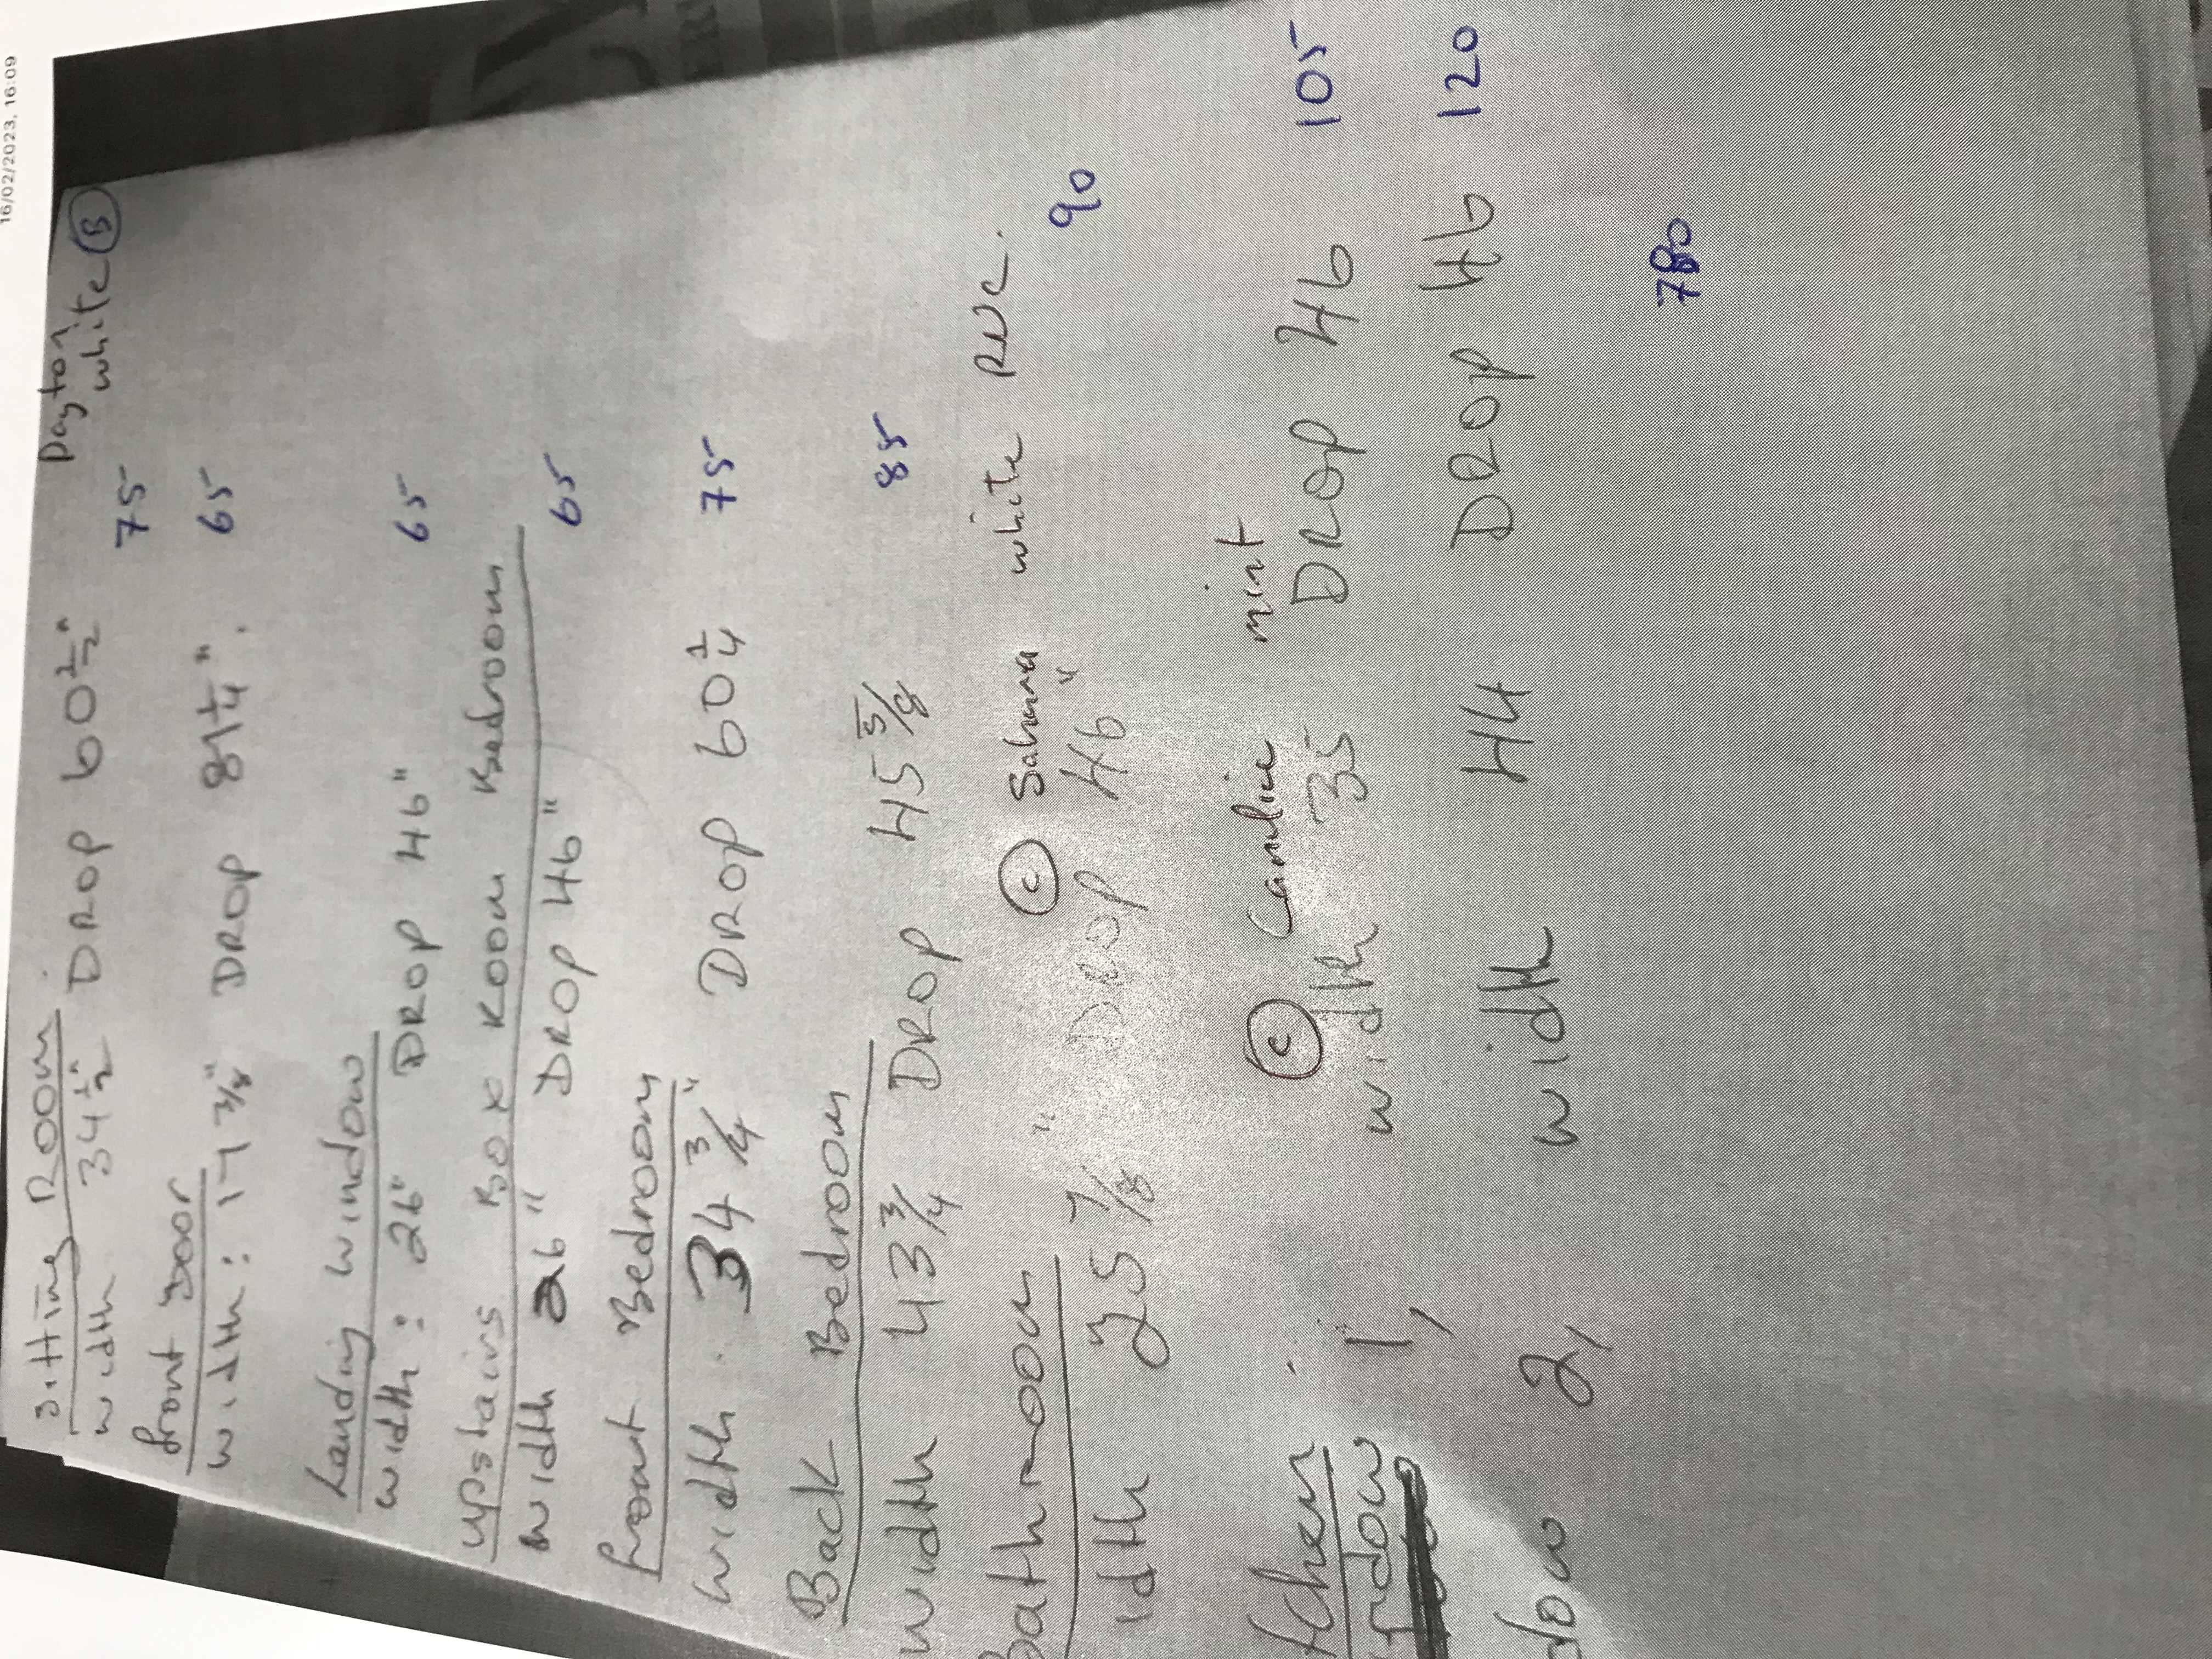 16/02/2023, 16:09
Dayton
white B
Sitting Room
width 34 1/2" DROP 60 1/2" 75
front Door
width: 17 3/8" DROP 81 1/4". 65
Landing window
width: 26" DROP 46" 65
upstairs Box Room Bedroom
width 26" DROP 46" 65
front Bedroom
width. 34 3/4" DROP 60 1/4 75
Back Bedroom
width 43 3/4 DROP 45 5/8 85
C Sahara white PVC.
Bathroom
idth 25 7/8" DROP 46" 90
C Carnline mint
tchen
ndow 1, width 35 DROP 46 105
dow 2, width 44 DROP 46 120
780